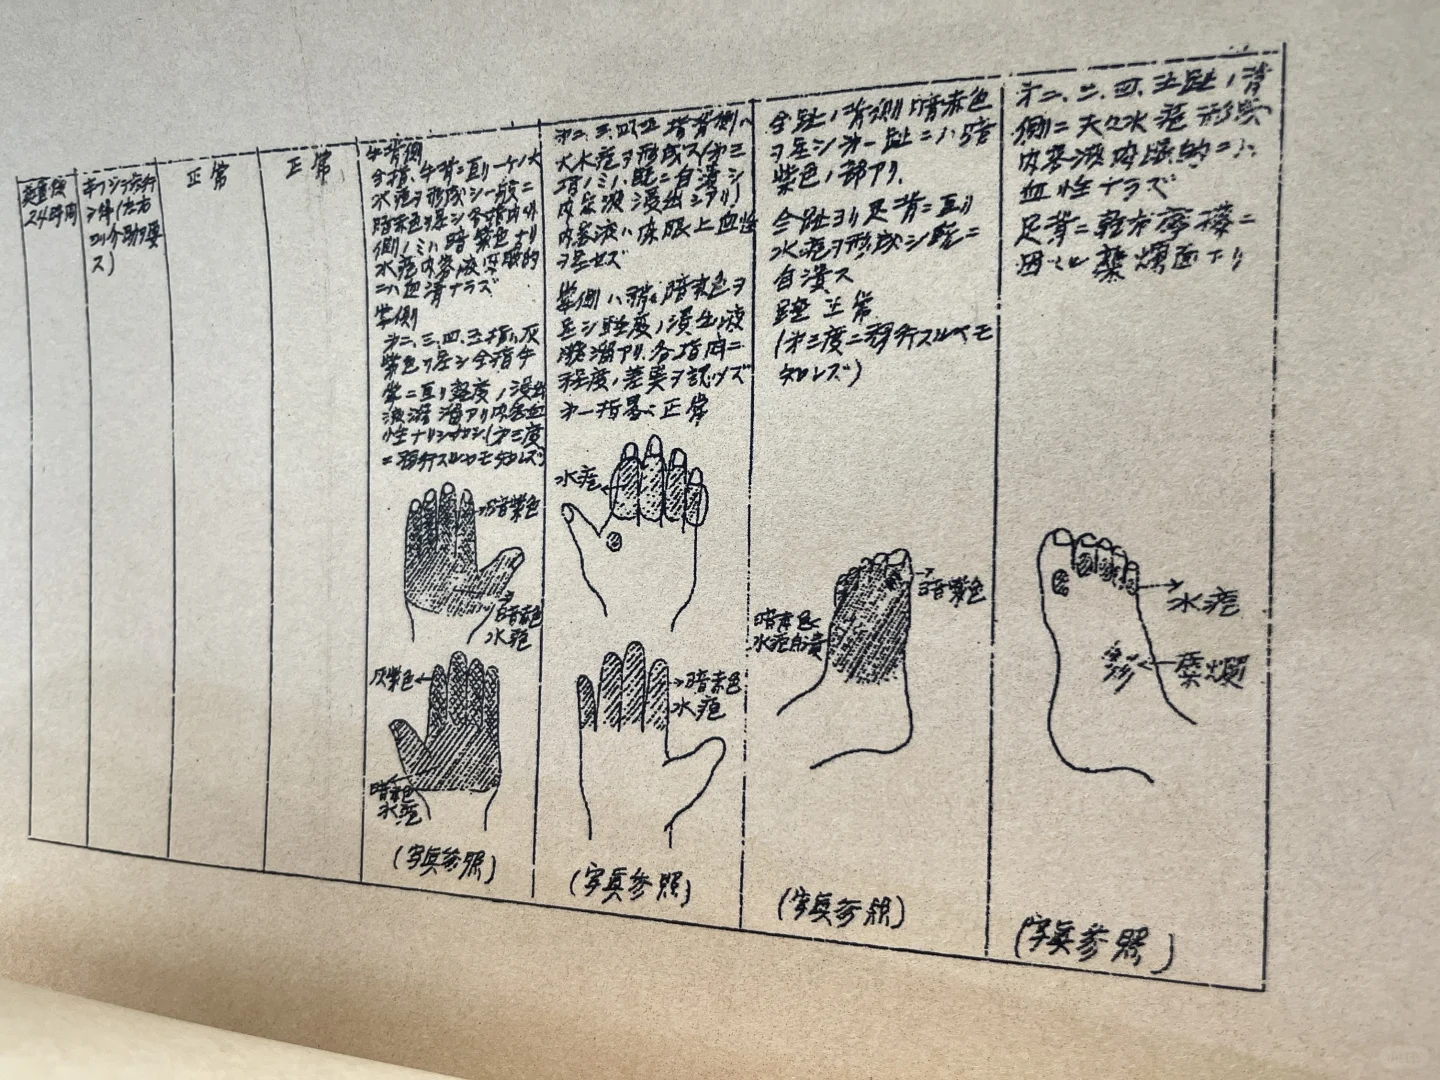 24時間
正常
正常
手背側
全指、手背ニ亘リ一ケノ大
水疱ヲ形成シ一般ニ
暗赤色ヲ呈シ各指内外
側ノミハ暗紫色ナリ
水疱内容液ハ肉眼的
ニハ血清ナラズ
掌側
第二、三、四、五指ハ灰
紫色ヲ呈シ全指手
掌ニ亘リ軽度ノ浸出
液瀦溜アリ内容血
性ナリ
(第三度
ニ移行スルヤモ知レズ)
暗紫色
暗赤色
水疱
灰紫色
暗赤色
水疱
(写真参照)
第二、三、四、五指背側ハ
大水疱ヲ形成ス(第三
指ノミハ既ニ自潰シ
内容液浸出シアリ)
内容液ハ肉眼上血性
ヲ呈セズ
掌側ハ稍々暗赤色ヲ
呈シ軽度ノ浸出液
瀦溜アリ、各指間ニ
程度ノ差異ヲ認メズ
第一指ハ正常
水疱
暗赤色
水疱
(写真参照)
全趾ノ背側暗赤色
ヲ呈シ第一趾ニハ暗
紫色ノ部アリ、
全趾ヨリ足背ニ亘リ
水疱ヲ形成シ既ニ
自潰ス
蹠正常
(第三度ニ移行スルヤモ
知レズ)
暗紫色
暗赤色
水疱自潰
(写真参照)
第一、二、四、五趾ノ背
側ニ大ノ水疱形成
内容液肉眼的ニハ
血性ナラズ
足背ニ
因ル糜爛面アリ
水疱
糜爛
(写真参照)